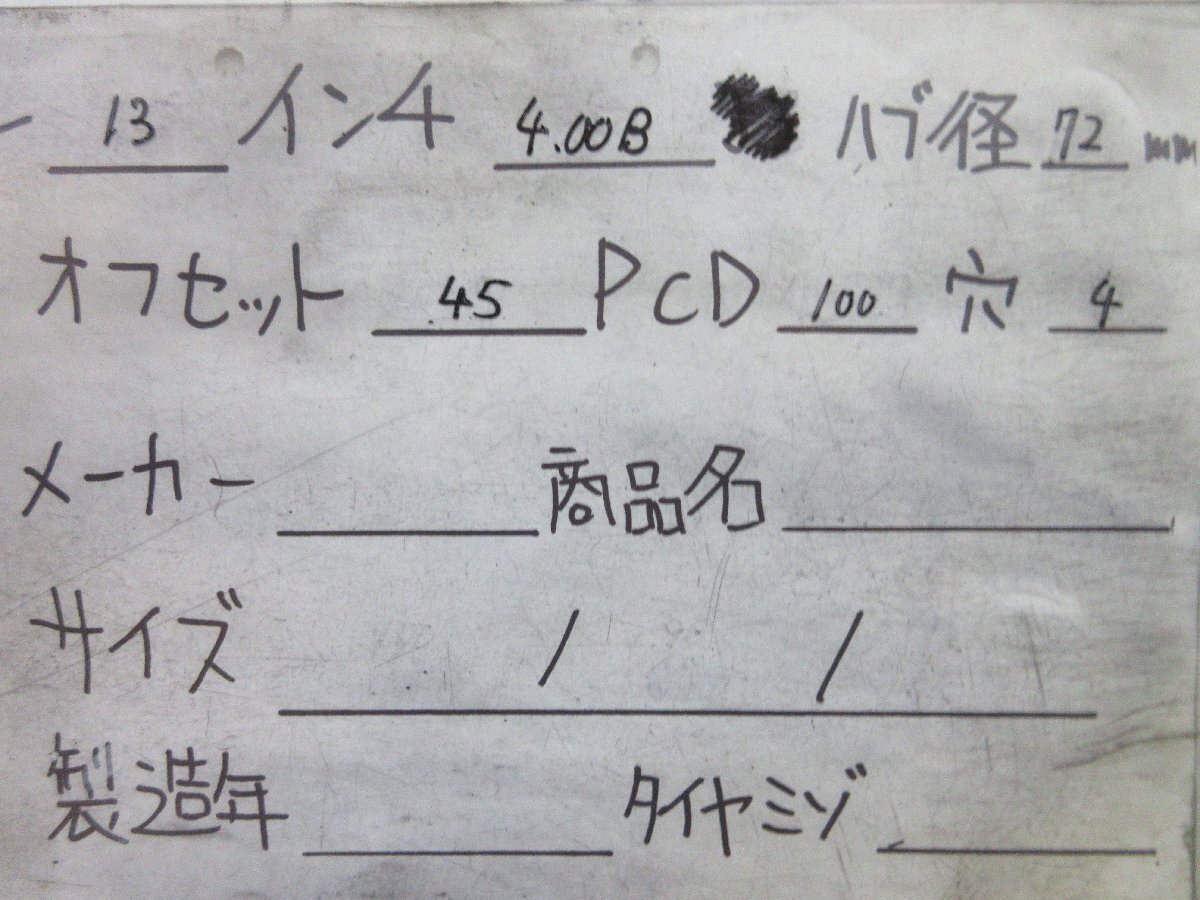 ー 13 インチ 4.00B ハブ径 72 mm
オフセット 45 PCD 100 穴 4
メーカー 商品名
サイズ / /
製造年 タイヤミゾ